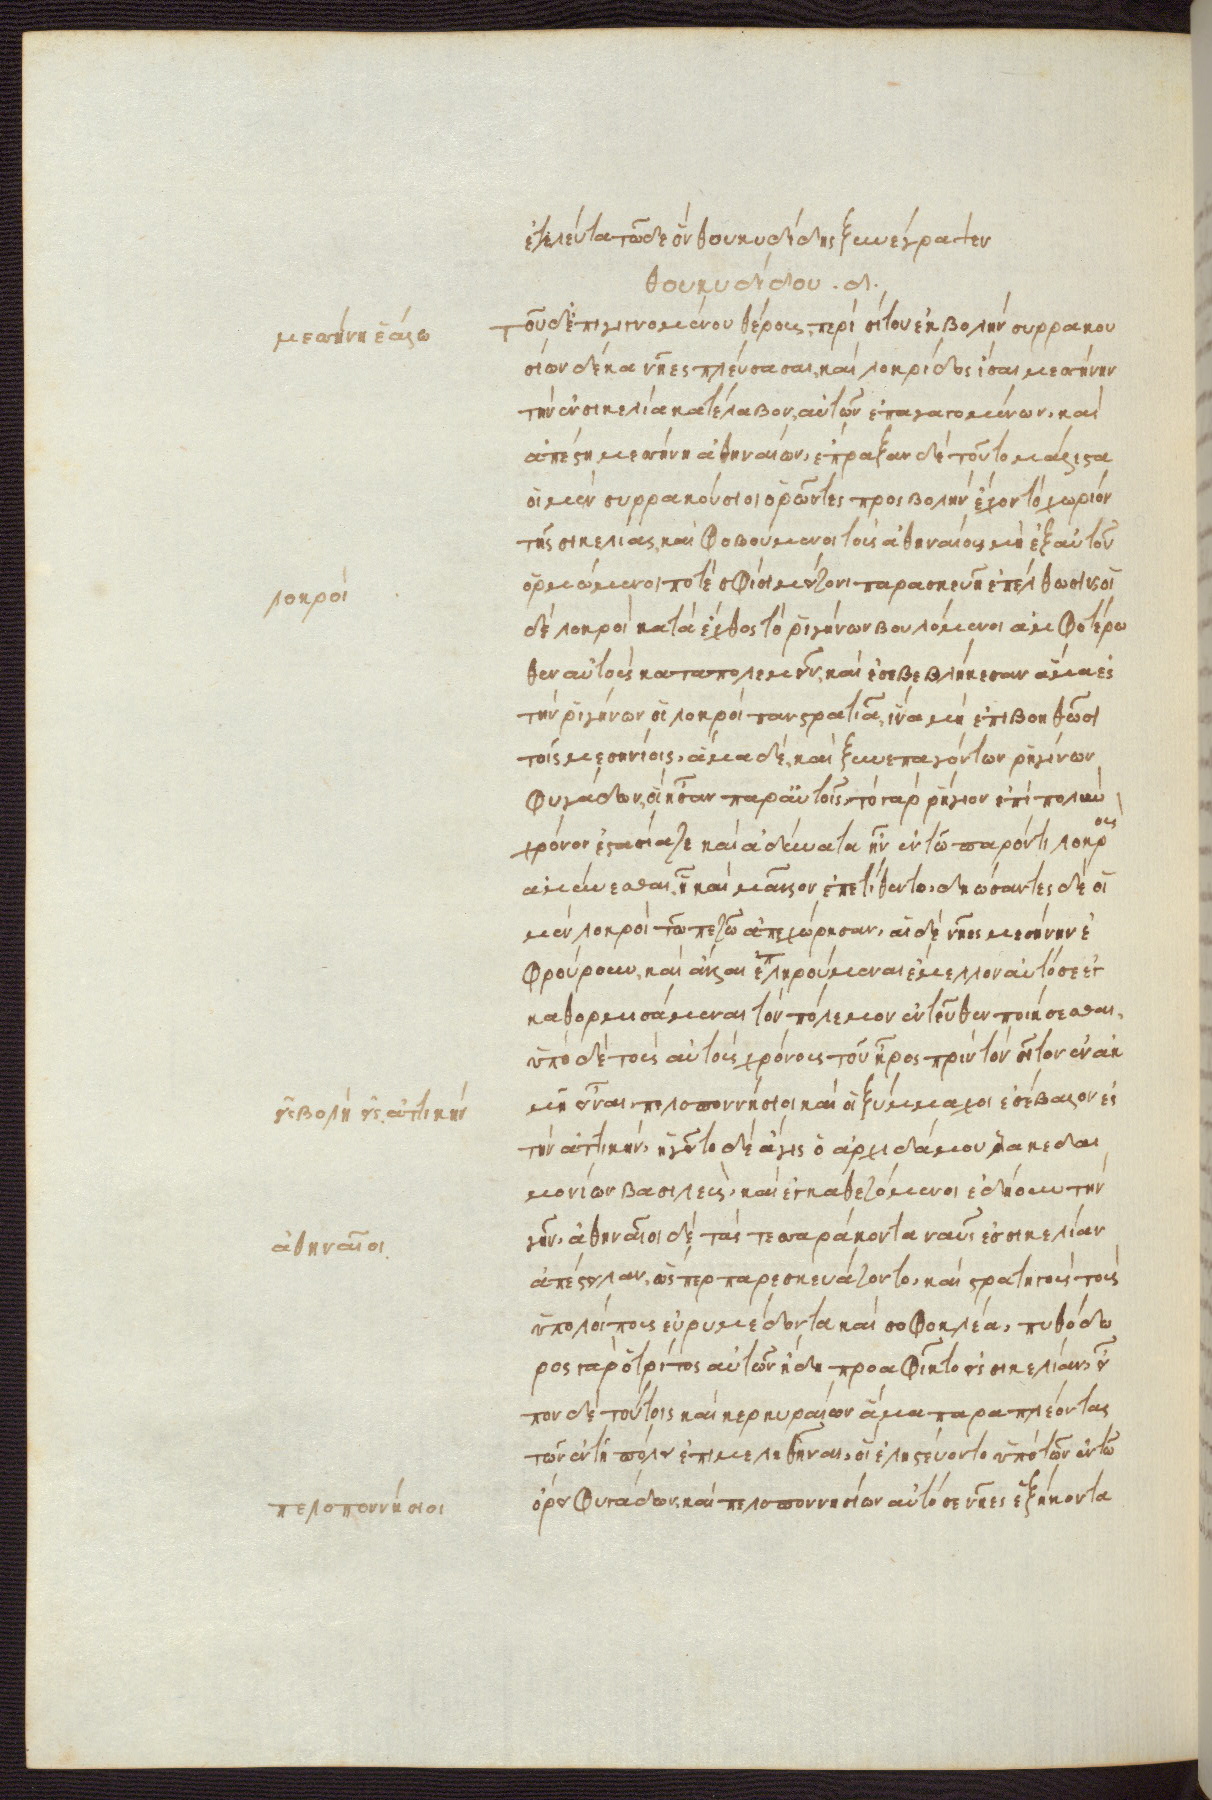 ἐτελεύτα τῶδε ὃν θουκυδίδης ξυνέγραψεν
θουκυδίδου . δ.
μεσσήνη ἑάλω
Τοῦ δ' ἐπιγιγνομένου θέρους, περὶ σίτου ἐκβολὴν συρρακου
σίων δέκα νῆες πλεύσασαι, καὶ λοκρίδες ἴσαι μεσσήνην
τὴν ἐν σικελία κατέλαβον, αὐτῶν ἐπαγαγομένων, καὶ
ἀπέστη μεσσήνη ἀθηναίων, ἔπραξαν δὲ τοῦτο μάλιστα
οἱ μὲν συρρακούσιοι ὁρῶντες προσβολὴν ἔχον τὸ χωρίον
τῆς σικελίας, καὶ φοβούμενοι τοὺς ἀθηναίους μὴ ἐξ αὐτοῦ
λοκροί
ὁρμώμενοι ποτὲ σφίσι μείζονι παρασκευῆ ἐπέλθωσιν, οἱ
δὲ λοκροὶ κατὰ ἔχθος τὸ ῥηγίνων βουλόμενοι ἀμφοτέρω
θεν αὐτοὺς καταπολεμεῖν, καὶ ἐσεβεβλήκεσαν ἅμα ἐς
τὴν ῥηγίνων οἱ λοκροὶ πανστρατιᾶ, ἵνα μὴ ἐπιβοηθῶσι
τοῖς μεσηνίοις, ἅμα δὲ, καὶ ξυνεπαγόντων ῥηγίνων
φυγάδων, οἳ ἦσαν παρ' αὐτοῖς, τὸ γὰρ ῥήγιον ἐπὶ πολὺν
χρόνον ἐστασίαζε καὶ ἀδύνατα ἦν ἐν τῶ παρόντι λοκροὺς
ἀμύνεσθαι, ἧ καὶ μᾶλλον ἐπετίθεντο, δηώσαντες δὲ οἱ
μὲν λοκροὶ τῶ πεζῶ ἀπεχώρησαν, αἱ δὲ νῆες μεσήνην ἐ
φρούρουν, καὶ ἄλλαι πληρούμεναι ἔμελλον αὐτόσε ἐγ
καθορμισάμεναι τὸν πόλεμον ἐντεῦθεν ποιήσεσθαι,
ὑπὸ δὲ τοὺς αὐτοὺς χρόνους τοῦ ἦρος πρὶν τὸν σῖτον ἐν ἀκ
εἰσβολὴ εἰς ἀττικὴν
μῆ εἶναι, πελοποννήσιοι καὶ οἱ ξύμμαχοι ἐσέβαλον ἐς
τὴν ἀττικήν, ἡγεῖτο δὲ ἆγις ὁ ἀρχιδάμου λακεδαι
μονίων βασιλεὺς, καὶ ἐγκαθεζόμενοι ἐδήουν τὴν
ἀθηναῖοι
γῆν, ἀθηναῖοι δὲ τάς τε σσαράκοντα ναῦς ἐς σικελίαν
ἀπέστειλαν, ὥσπερ παρεσκευάζοντο, καὶ στρατηγοὺς τοὺς
ὑπολοίπους εὐρυμέδοντα καὶ σοφοκλέα, πυθόδω
ρος γὰρ ὁ τρίτος αὐτῶν ἤδη προαφῖκτο εἰς σικελίαν, εἶ
πον δὲ τούτοις καὶ κερκυραίων ἅμα παραπλέοντας
τῶν ἐν τῆ πόλει ἐπιμεληθῆναι, οἳ ἐληστεύοντο ὑπὸ τῶν ἐν τῶ
πελοποννήσιοι
ὄρει φυγάδων, καὶ πελοποννησίων αὐτόσε νῆες ἑξήκοντα